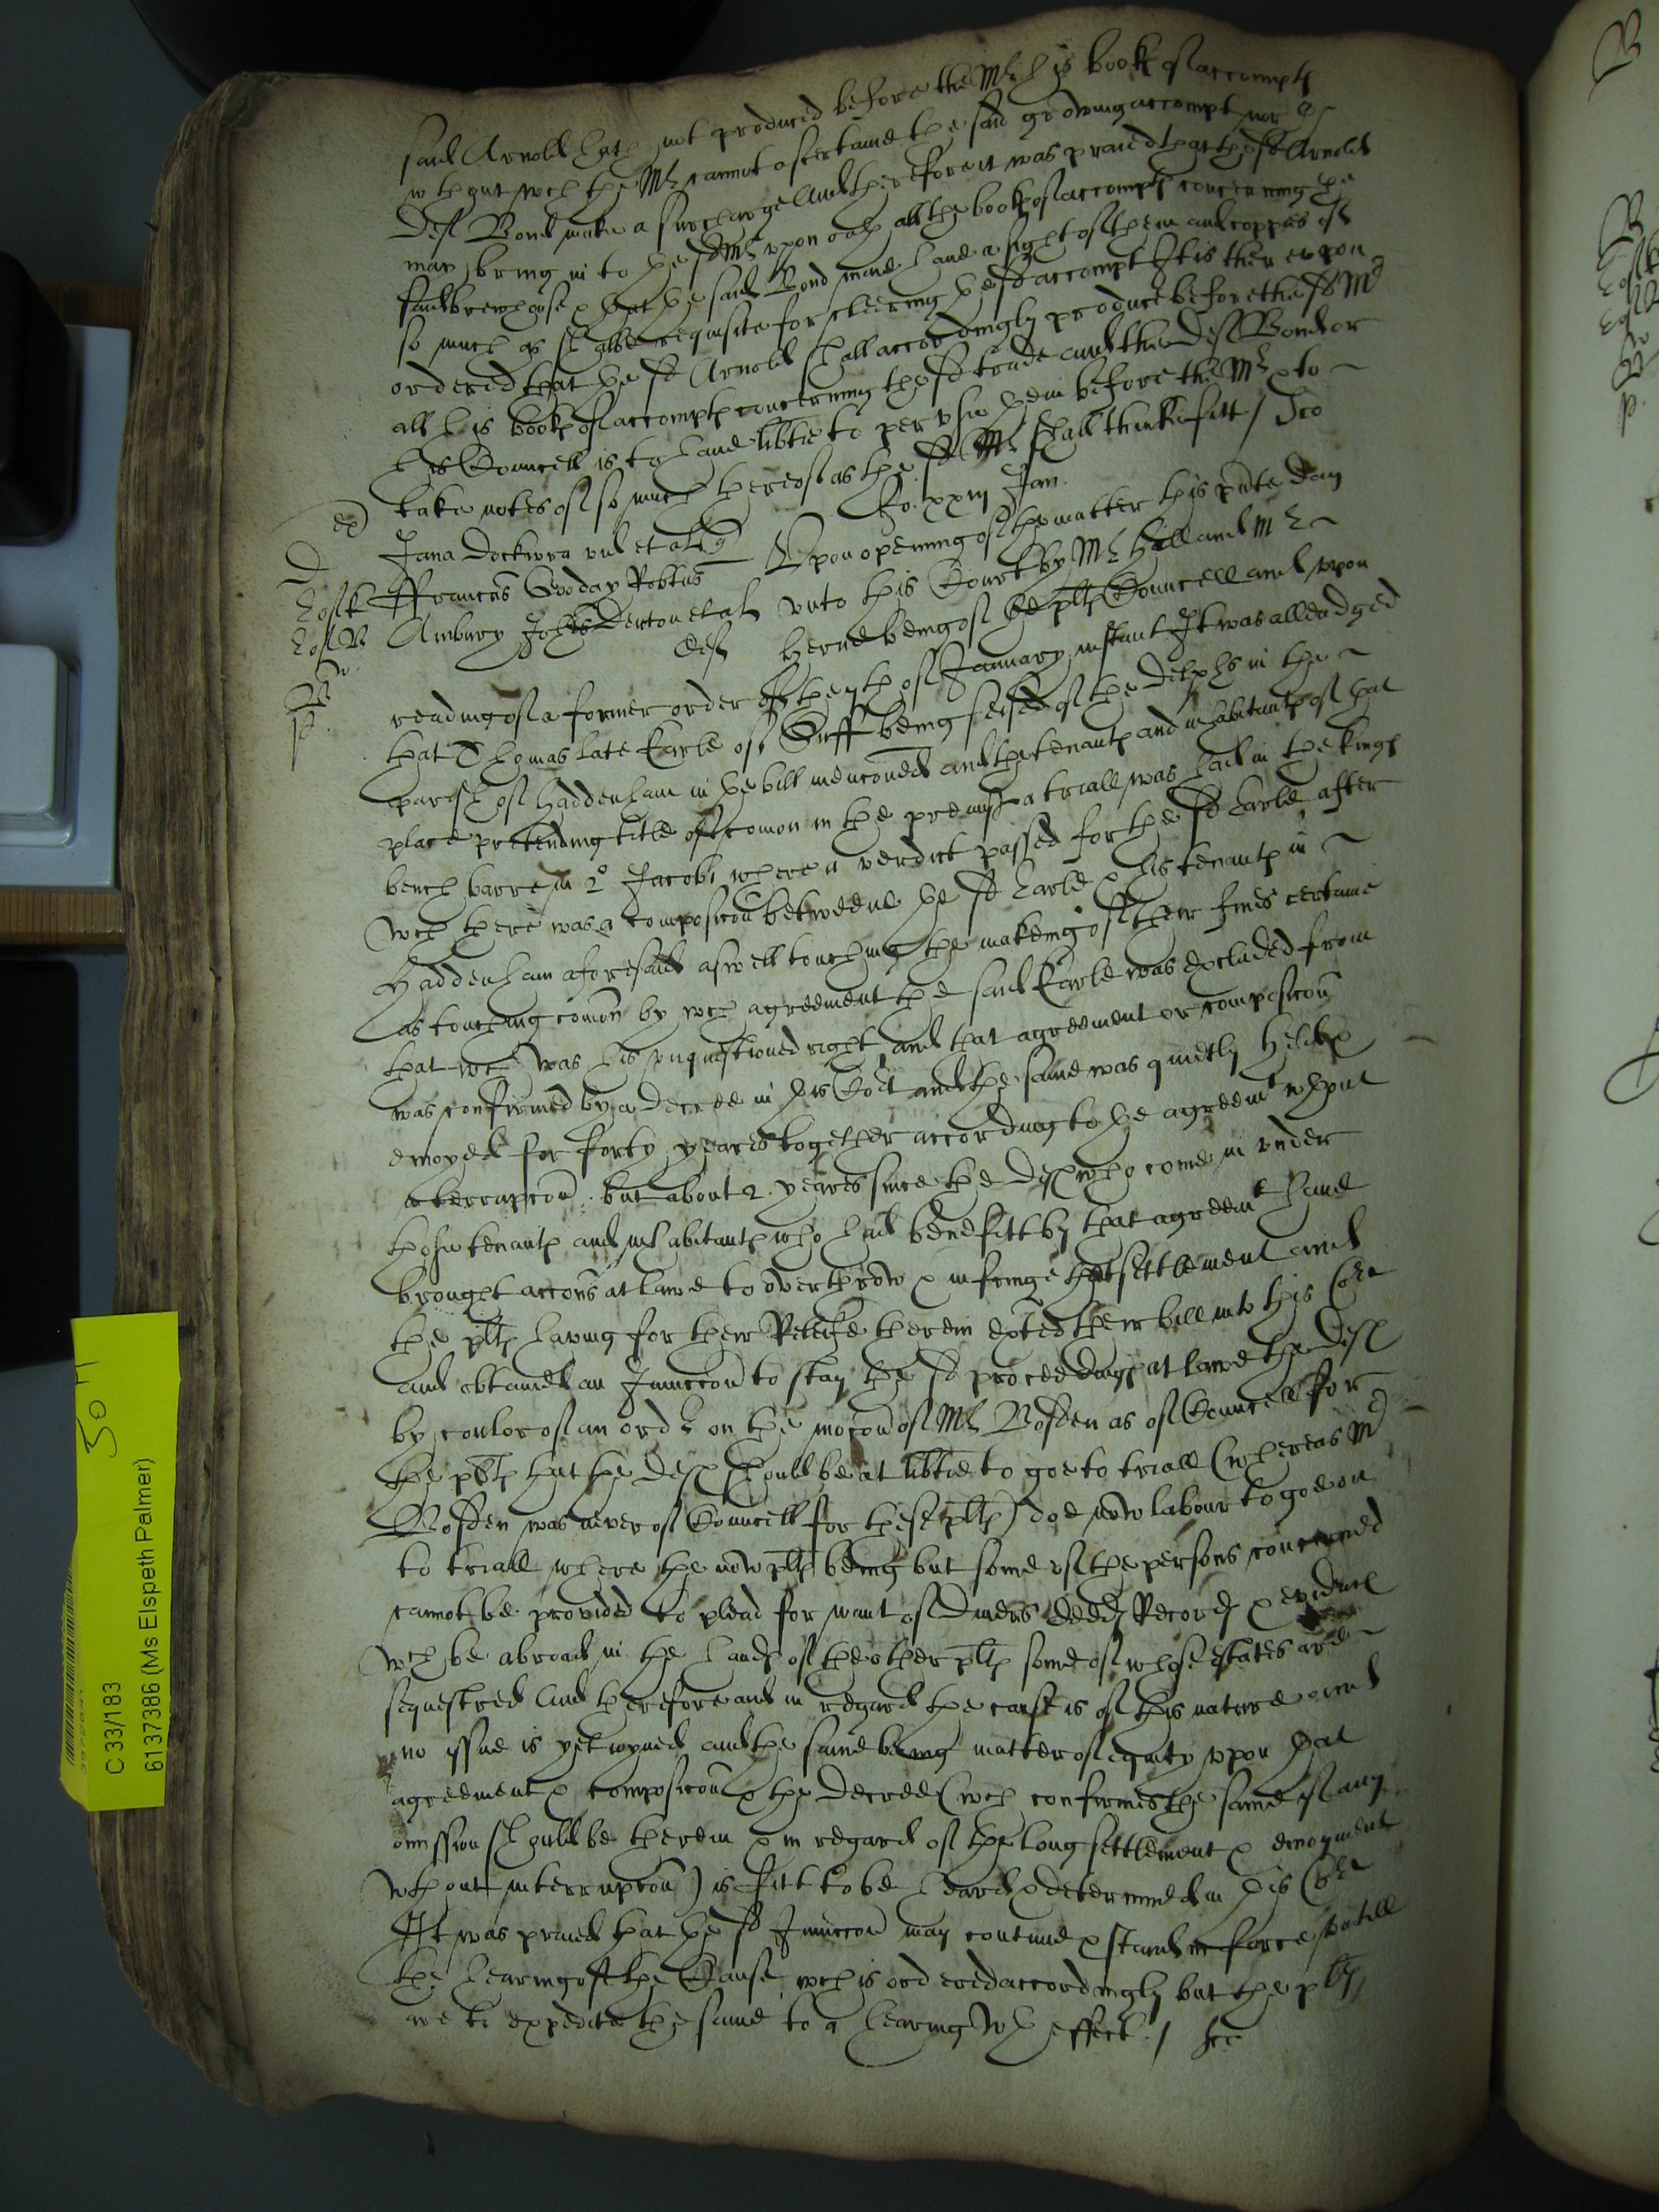 said Arnold hath not produced before the Mr his book of accompts
wthout wch the Mr cannot ascertaine the said growing accompt nor the
Deft Bond make a surcharge And therefore it was praied that the sd Arnold
may bring in to the sd Mr vpon oath all the books of accompts concerning the
said brewhouse & that the said Bond maie have a sight of them and coppies of
so much as shalbe requisite for cleering the sd accompt It is therevpon
ordered that the sd Arnold shall accordingly produce before the sd Mr
all his books of accompts concerning the sd trade and the Deft Bond or
his Councell is to have libtie to pervse them before the Mr & to
take notes of so much thereof as the sd Mr shall thinke fitt /
Jo. xxiij Jan.
Jana Dockwra vid et al qu
Franciscus Gooday Robtus
Ambury Johes Berton et al
def
Vpon opening of the matter this pnte day
vnto this Court by Mr Hall and Mr
Herne being of the plts Councell and vpon
reading of a former order of the 7th of January instant It was alleadged
that Thomas late Earle of Suff being seised of the Delphs in the
parish of Haddenham in the bill menconed and the tenants and inhabitants of that
place pretending title of comon in the premiss a triall was had in the kings
bench barre in 2o Jacobi where a verdict passed for the sd Earle after
wch there was a composicon betweene the sd Earle & his tenants in
Haddenham aforesaid aswell touching the makeing of their fines certaine
as touching comon by wch agreement the said Earle was excluded from
that wch was his vnquestioned right and that agreement or composicon
was confirmed by a Decree in this Cort and the same was quietly held &
enioyed for forty yeares together according to the agreemt wthout
interrupcon but about 2 yeares since the Defts who come in vnder
those tenants and inhabitants who had benefitt by that agreemt have
brought accons at lawe to overthrow & infringe that settlement and
the plts having for their Releife therein exhited their bill into this Cort
and obtained an Iniunccon to stay the sd proceedings at lawe the Defts
by coulor of an ordr on the mocon of Mr Bosden as of Councell for
the plts that the Defts should be at libtie to goe to triall (whereas Mr
Bosden was never of Councell for these plts) doe now labour to goe on
to triall where the now plts being but some of the persons concerned
cannot be provided to plead for want of divers Deeds Records & evidence
wch be abroad in the hands of the other plts some of whose estates are
sequestred And therefore and in regard the cause is of this nature and
no issue is yet ioyned and the same being matter of equity vpon that
agreement & composicon & the Decree (wch confirmes the same if any
omission should be therein & in regard of the long settlement & enioyment
wthout interrupcon) is fitt to be heard & determined in this Cort
It was praied that the sd Iniunccon may continue & stand in force vntill
the hearing of the Cause, wch is ordered accordingly but the plts
are to expedite the same to a hearing wth effect /
C 33/183
6137386 (Ms Elspeth Palmer)